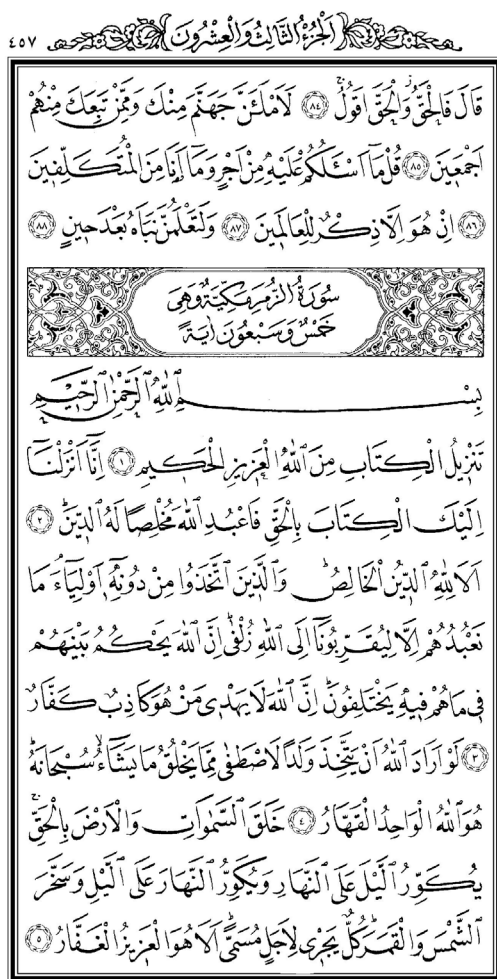 الجزء الثالث والعشرون
٤٥٧
قَالَ فَالْحَقُّ وَالْحَقَّ اَقُولُ ﴿٨٤﴾ لَاَمْلَـَٔنَّ جَهَنَّمَ مِنْكَ وَمِمَّنْ تَبِعَكَ مِنْهُمْ
اَجْمَعِينَ ﴿٨٥﴾ قُلْ مَٓا اَسْـَٔلُكُمْ عَلَيْهِ مِنْ اَجْرٍ وَمَٓا اَنَا۬ مِنَ الْمُتَكَلِّفِينَ
﴿٨٦﴾ اِنْ هُوَ اِلَّا ذِكْرٌ لِلْعَالَمِينَ ﴿٨٧﴾ وَلَتَعْلَمُنَّ نَبَاَهُ بَعْدَ حِينٍ ﴿٨٨﴾
سُورَةُ الزُّمَرِ مَكِّيَّةٌ وَهِيَ
خَمْسٌ وَسَبْعُونَ اٰيَةً
بِسْمِ اللّٰهِ الرَّحْمٰنِ الرَّحِيمِ
تَنْزِيلُ الْكِتَابِ مِنَ اللّٰهِ الْعَزِيزِ الْحَكِيمِ ﴿١﴾ اِنَّٓا اَنْزَلْنَٓا
اِلَيْكَ الْكِتَابَ بِالْحَقِّ فَاعْبُدِ اللّٰهَ مُخْلِصًا لَهُ الدِّينَۜ ﴿٢﴾
اَلَا لِلّٰهِ الدِّينُ الْخَالِصُۜ وَالَّذِينَ اتَّخَذُوا مِنْ دُونِهِٓ اَوْلِيَٓاءَۢ مَا
نَعْبُدُهُمْ اِلَّا لِيُقَرِّبُونَٓا اِلَى اللّٰهِ زُلْفٰىۜ اِنَّ اللّٰهَ يَحْكُمُ بَيْنَهُمْ
فِي مَا هُمْ فِيهِ يَخْتَلِفُونَۜ اِنَّ اللّٰهَ لَا يَهْدِي مَنْ هُوَ كَاذِبٌ كَفَّارٌ
﴿٣﴾ لَوْ اَرَادَ اللّٰهُ اَنْ يَتَّخِذَ وَلَدًا لَاصْطَفٰى مِمَّا يَخْلُقُ مَا يَشَٓاءُۙ سُبْحَانَهُۜ
هُوَ اللّٰهُ الْوَاحِدُ الْقَهَّارُ ﴿٤﴾ خَلَقَ السَّمٰوَاتِ وَالْاَرْضَ بِالْحَقِّۚ
يُكَوِّرُ الَّيْلَ عَلَى النَّهَارِ وَيُكَوِّرُ النَّهَارَ عَلَى الَّيْلِ وَسَخَّرَ
الشَّمْسَ وَالْقَمَرَۜ كُلٌّ يَجْرِي لِاَجَلٍ مُسَمًّىۜ اَلَا هُوَ الْعَزِيزُ الْغَفَّارُ ﴿٥﴾